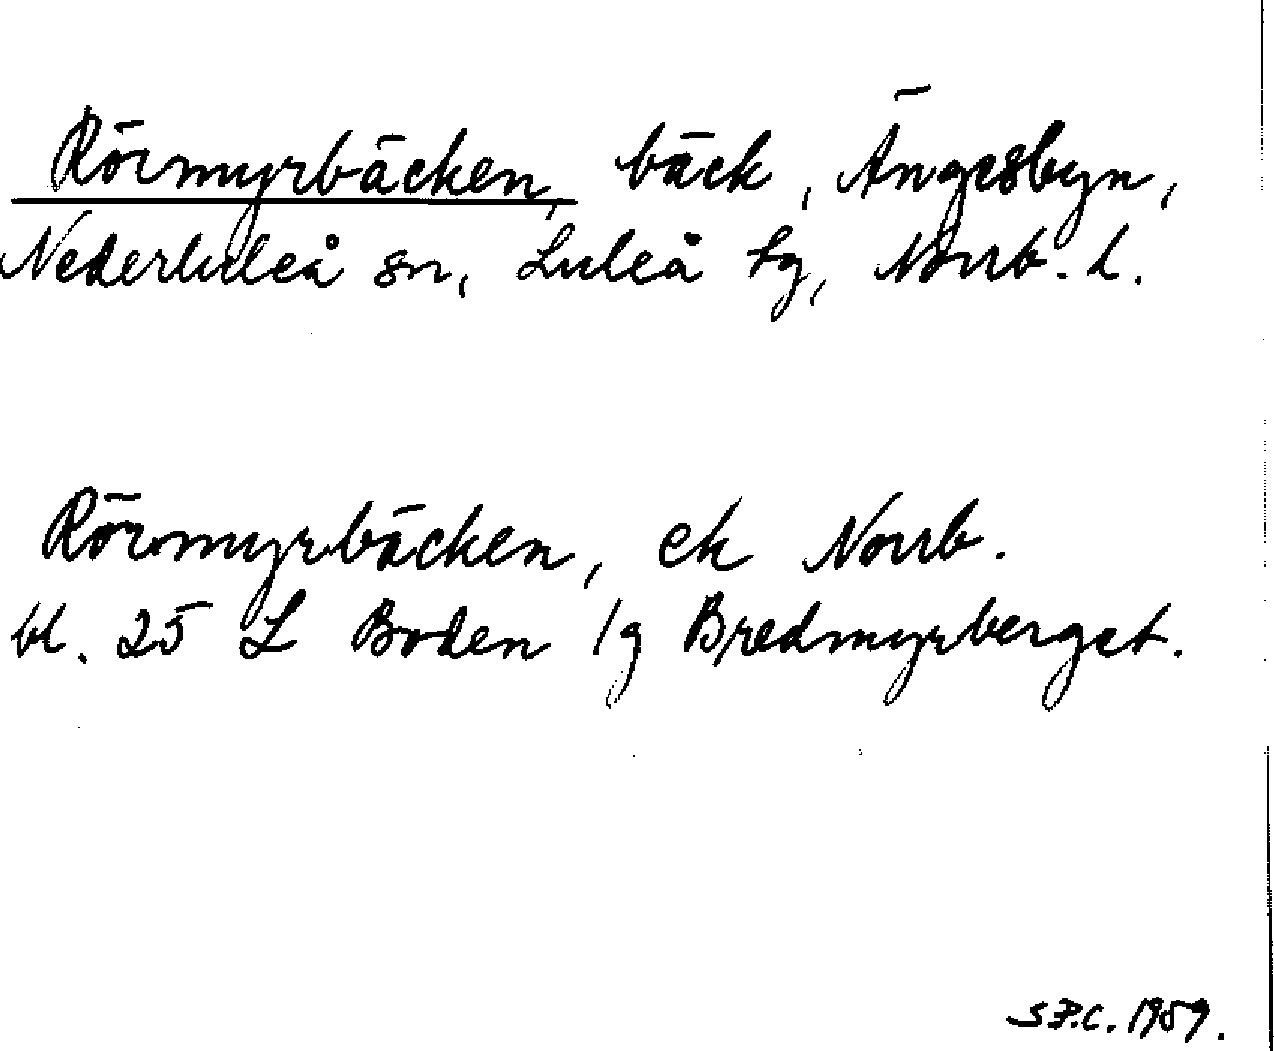 Rörmyrbäcken, bäck, Ängesbyn,
Nederluleå sn, Luleå tg, Norrb. l.
Rörmyrbäcken, ek Norrb.
bl. 25 L Boden lg Bredmyrberget.
S.P.C. 1959.